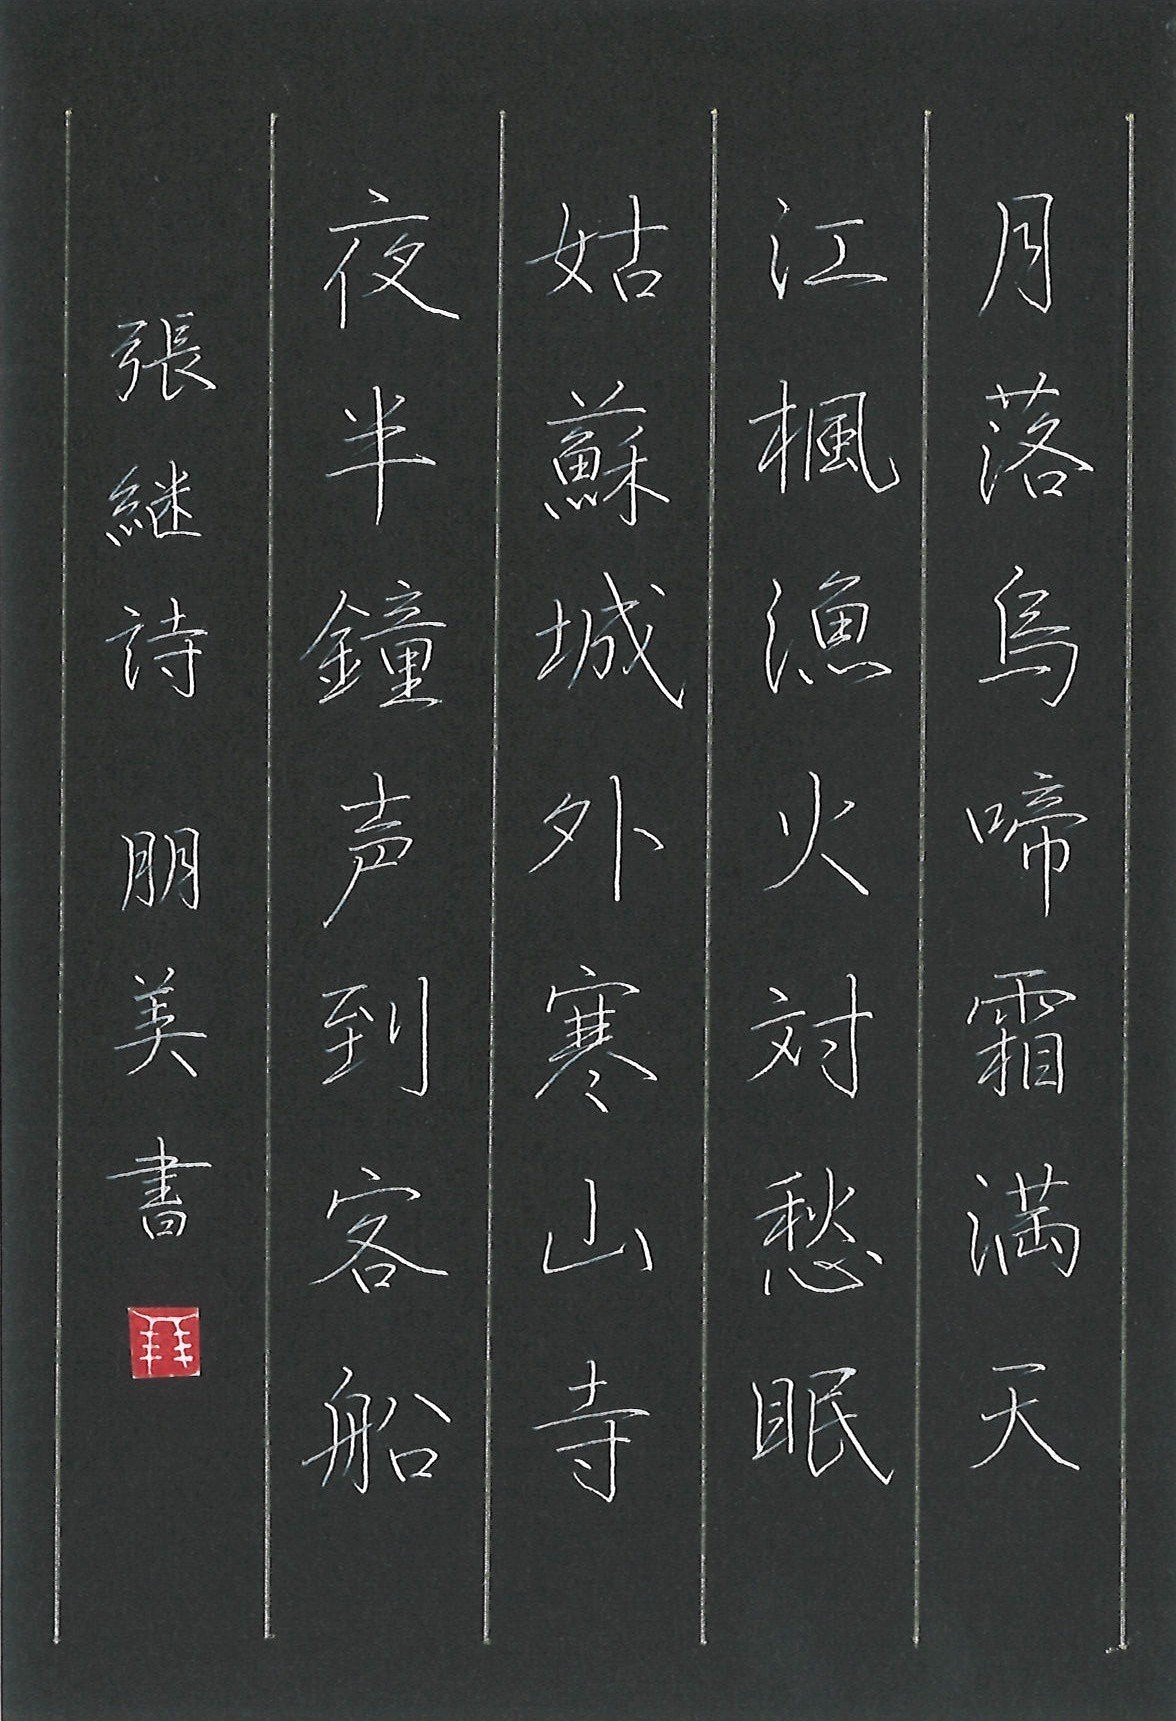 月落烏啼霜満天
江楓漁火対愁眠
姑蘇城外寒山寺
夜半鐘声到客船
張継詩 朋美書